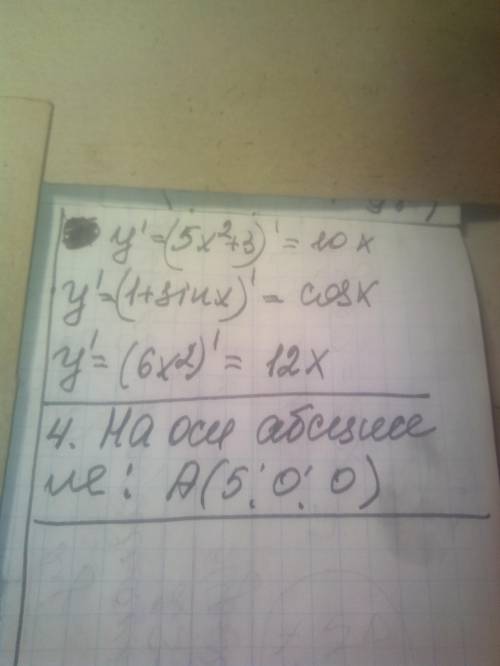 y' = (5x²+3)' = 10x
y' = (1+sinx)' = cosx
y' = (6x²)' = 12x
4. На оси абсцисс
: A(5; 0; 0)